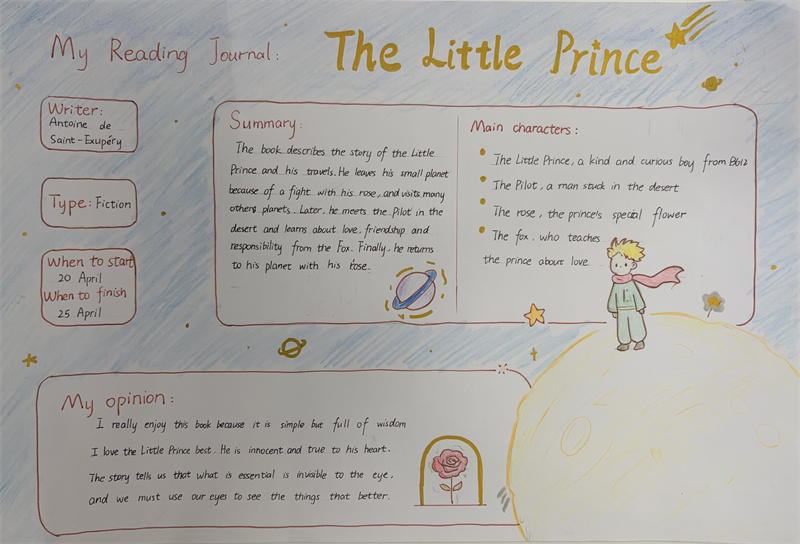 My Reading Journal:
The Little Prince
Writer:
Antoine de
Saint-Exupéry
Type: Fiction
When to start
20 April
When to finish
25 April
Summary:
The book describes the story of the Little
Prince and his travels. He leaves his small planet
because of a fight with his rose, and visits many
others planets. Later, he meets the Pilot in the
desert and learns about love, friendship and
responsibility from the Fox. Finally, he returns
to his planet with his rose.
Main characters:
The Little Prince, a kind and curious boy from B612
The Pilot, a man stuck in the desert
The rose, the prince's special flower
The fox, who teaches
the prince about love
My opinion:
I really enjoy this book because it is simple but full of wisdom
I love the Little Prince best. He is innocent and true to his heart.
The story tells us that what is essential is invisible to the eye,
and we must use our eyes to see the things that better.